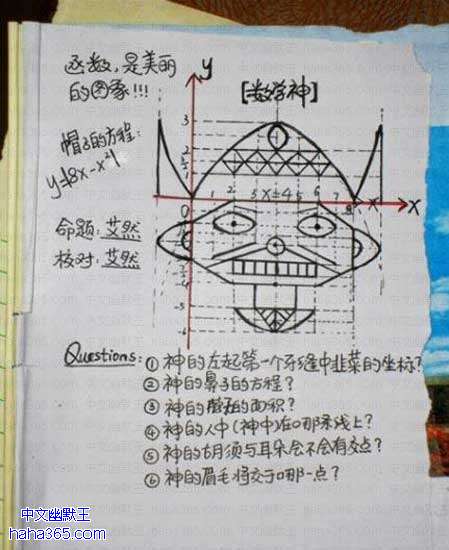 函数,是美丽
的图象!!!
y
[数学神]
帽子的方程:
y=|8x-x²|
3
2
1
0
1
2
3
x=4
5
6
7
8
x
X
命题:艾然
核对:艾然
Questions:
①神的左起第一个牙缝中韭菜的坐标?
②神的鼻子的方程?
③神的脖子的面积?
④神的人中(神中)在哪条线上?
⑤神的胡须与耳朵会不会有交点?
⑥神的眉毛将交于哪一点?
中文幽默王
haha365.com